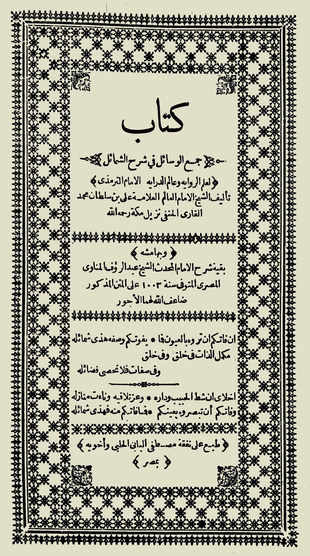 كتاب
جمع الوسائل في شرح الشمائل
لعلم الرواية وعالم الدراية الامام الترمذى
تأليف الشيخ الامام العالم العلامة على بن سلطان محمد
القارى الحنفى نزيل مكة رحمه الله
وبهامشه
بقية شرح الامام المحدث الشيخ عبد الرؤف المناوى
المصرى المتوفى سنة ١٠٠٣ على المتن المذكور
ضاعف الله لهما الأجور
ان فاتكم ان تروه بالعيون فما * يفوتكم وصفه هذى شمائله
مكمل الذات فى خلق وفى خلق
وفى صفات فلا تحصى فضائله
اخلاى ان شط الحبيب وداره * وعز تلاقيه وناءت منازله
وفاتكم أن تبصروه بعينكم * فما فاتكم منه فهذى شمائله
طبع على نفقة مصطفى البابى الحلبى وأخويه
بمصر